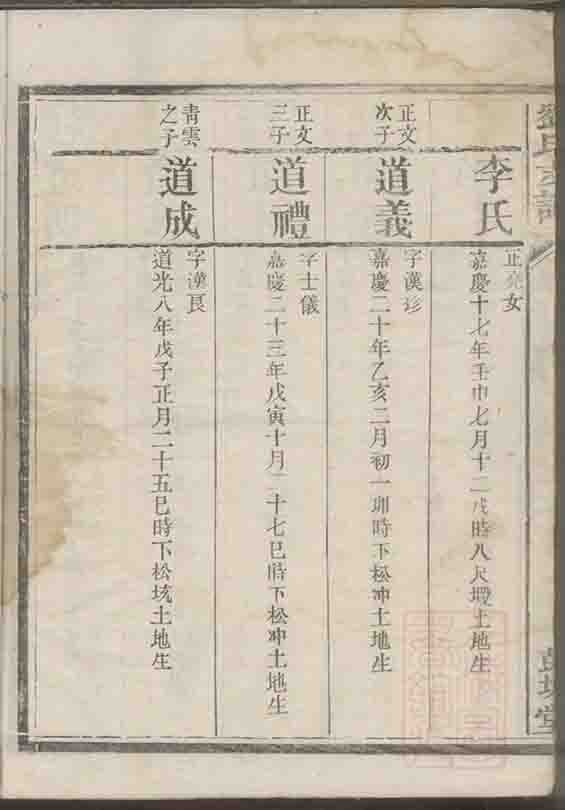 劉氏宗譜
李氏
正亮女
嘉慶十七年壬申七月十二戌時八尺塅土地生
正文
次子
道義
字漢珍
嘉慶二十年乙亥二月初一 時下松冲土地生
正文
三子
道禮
字士儀
嘉慶二十三年戊寅十月二十七巳時下松冲土地生
青雲
之子
道成
字漢良
道光八年戊子正月二十五巳時下松垓土地生